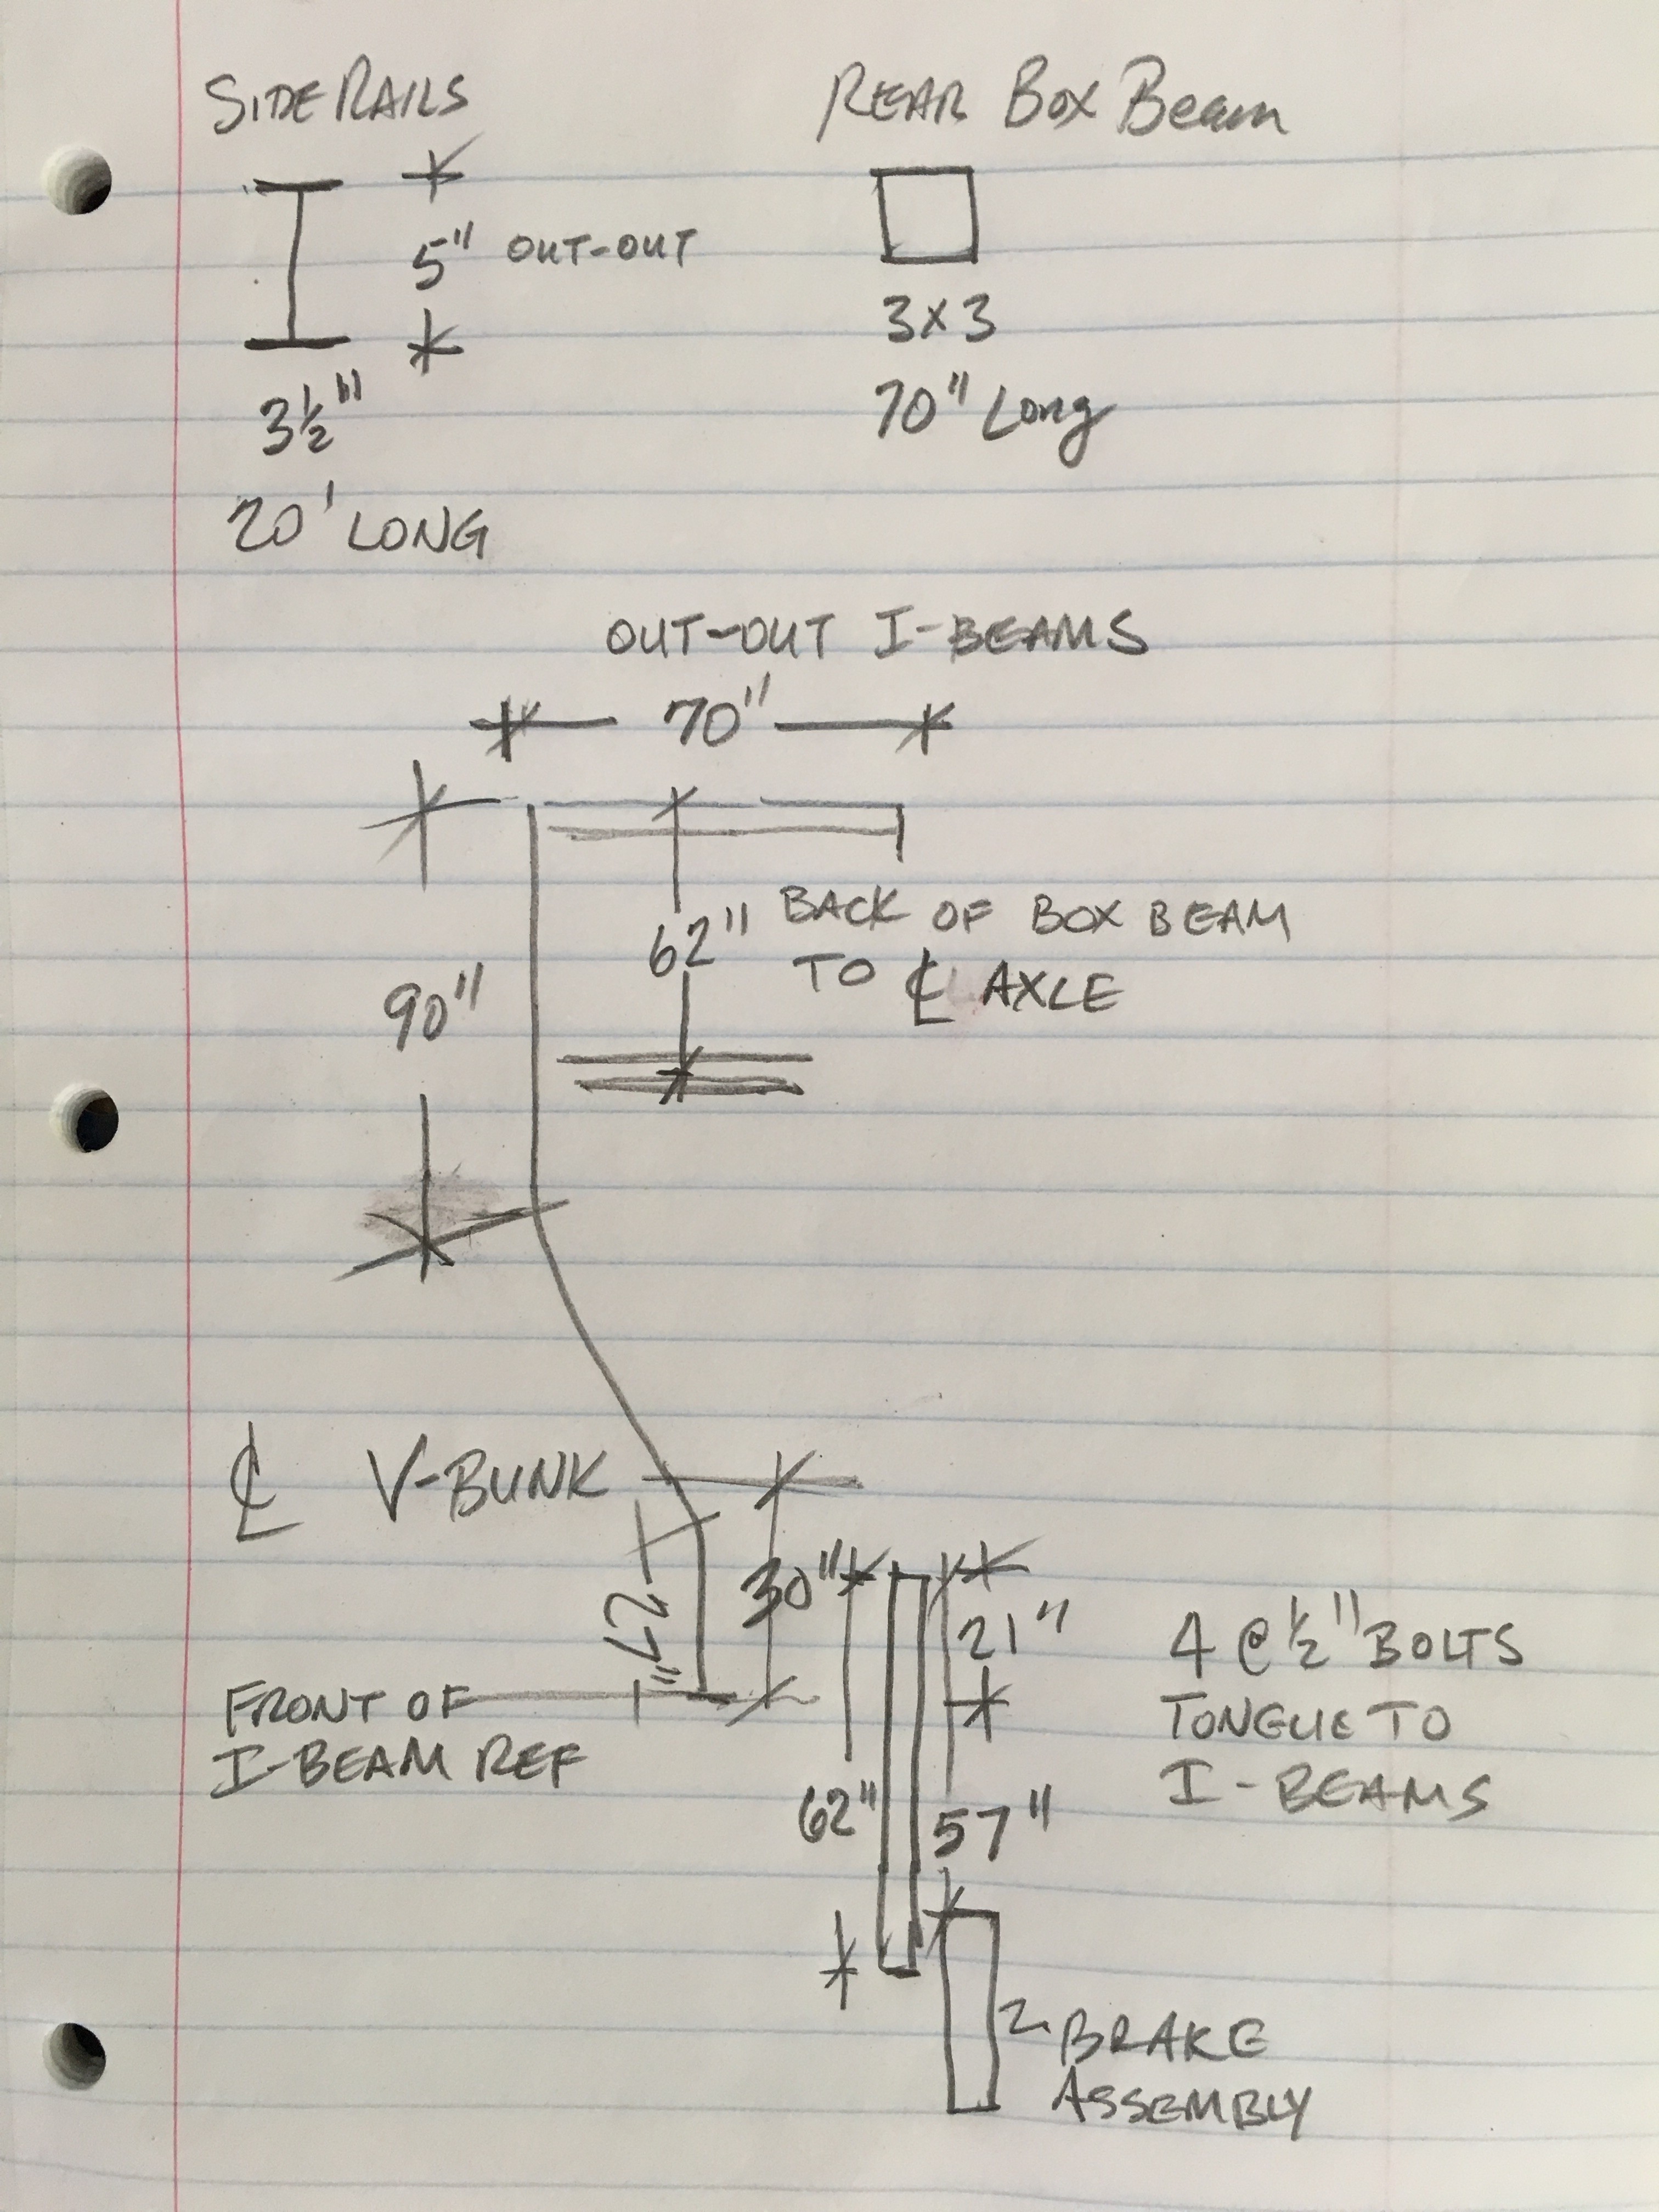 SIDE RAILS
5" OUT-OUT
3½"
20' LONG
REAR BOX Beam
3x3
70" Long
OUT-OUT I-BEAMS
70"
90"
62" BACK OF BOX BEAM
TO ℄ AXLE
℄ V-BUNK
27"
30"
FRONT OF
I-BEAM REF
21"
62"
57"
4 @ ½" BOLTS
TONGUE TO
I-BEAMS
BRAKE
ASSEMBLY